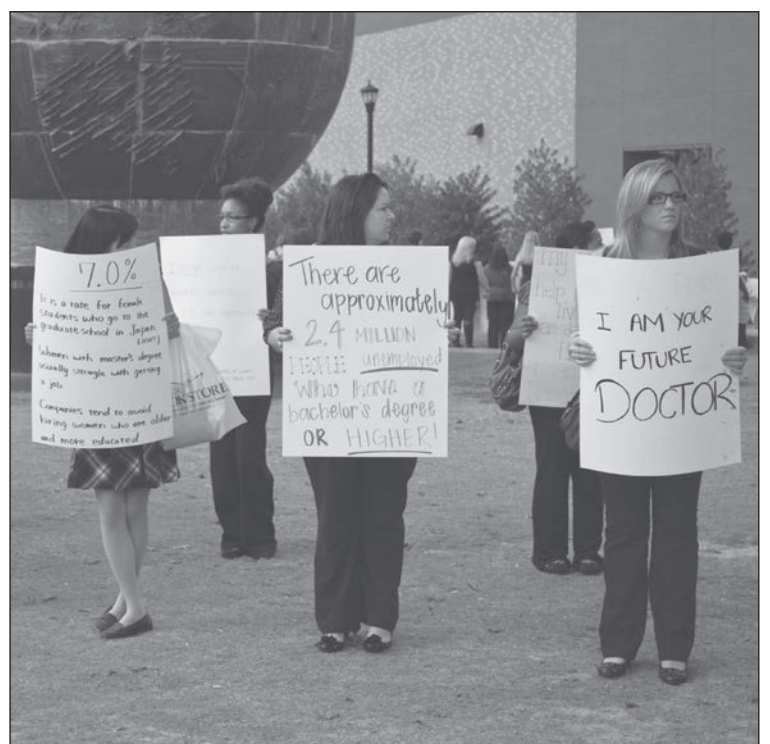 7.0%
It is a rate for female
students who go to the
graduate school in Japan
(2007)
Women with master's degree
usually struggle with getting
a job
Companies tend to avoid
hiring women who are older
and more educated
There are
approximately
2.4 MILLION
PEOPLE unemployed
Who have a
bachelor's degree
OR HIGHER!
help
I AM YOUR
FUTURE
DOCTOR